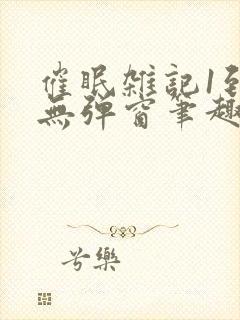 催眠雜記1至
無彈窗筆趣
兮樂